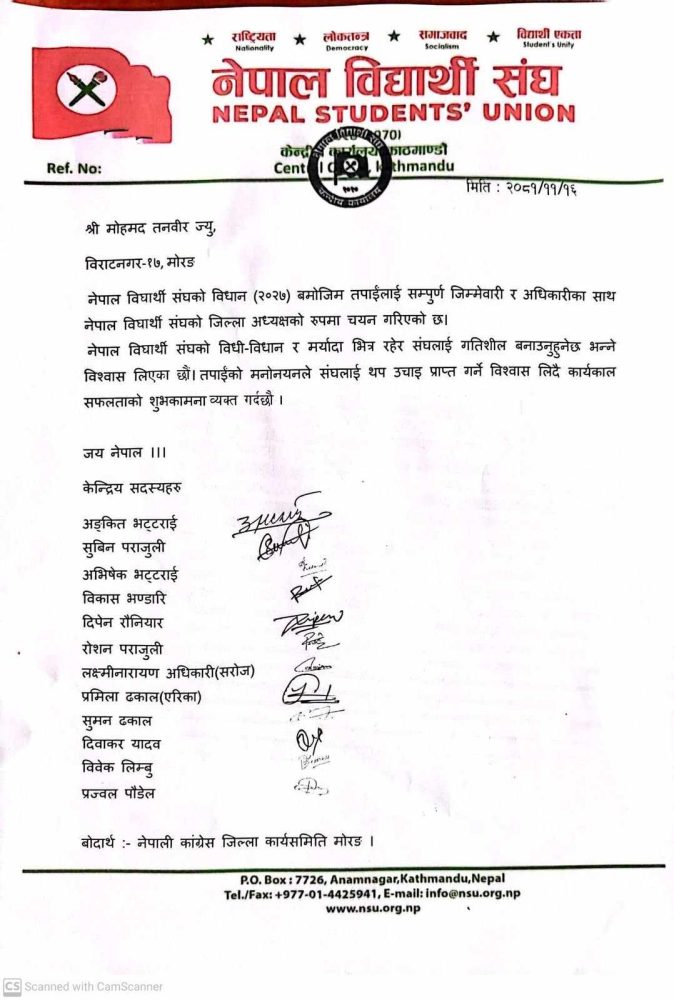 ★ राष्ट्रियता ★ लोकतन्त्र ★ समाजवाद ★ विद्यार्थी एकता
Nationality Democracy Socialism Student's Unity
नेपाल विद्यार्थी संघ
NEPAL STUDENTS' UNION
केन्द्रीय कार्यालय काठमाण्डौ
Ref. No:
Kathmandu
मिति : २०८१/११/१६
श्री मोहमद तनवीर ज्यु,
विराटनगर-१७, मोरङ
नेपाल विघार्थी संघको विधान (२०२७) बमोजिम तपाईलाई सम्पुर्ण जिम्मेवारी र अधिकारीका साथ
नेपाल विघार्थी संघको जिल्ला अध्यक्षको रुपमा चयन गरिएको छ।
नेपाल विघार्थी संघको विधी-विधान र मर्यादा भित्र रहेर संघलाई गतिशील बनाउनुहुनेछ भन्ने
विश्वास लिएका छौं। तपाईको मनोनयनले संघलाई थप उचाइ प्राप्त गर्ने विश्वास लिदै कार्यकाल
सफलताको शुभकामना व्यक्त गर्दछौ ।
जय नेपाल ।।।
केन्द्रिय सदस्यहरु
अङ्कित भट्टराई
सुबिन पराजुली
अभिषेक भट्टराई
विकास भण्डारि
दिपेन रौनियार
रोशन पराजुली
लक्ष्मीनारायण अधिकारी(सरोज)
प्रमिला ढकाल(एरिका)
सुमन ढकाल
दिवाकर यादव
विवेक लिम्बु
प्रज्वल पौडेल
बोदार्थ :- नेपाली कांग्रेस जिल्ला कार्यसमिति मोरङ ।
P.O. Box : 7726, Anamnagar,Kathmandu,Nepal
Tel./Fax: +977-01-4425941, E-mail: info@nsu.org.np
www.nsu.org.np
CS Scanned with CamScanner